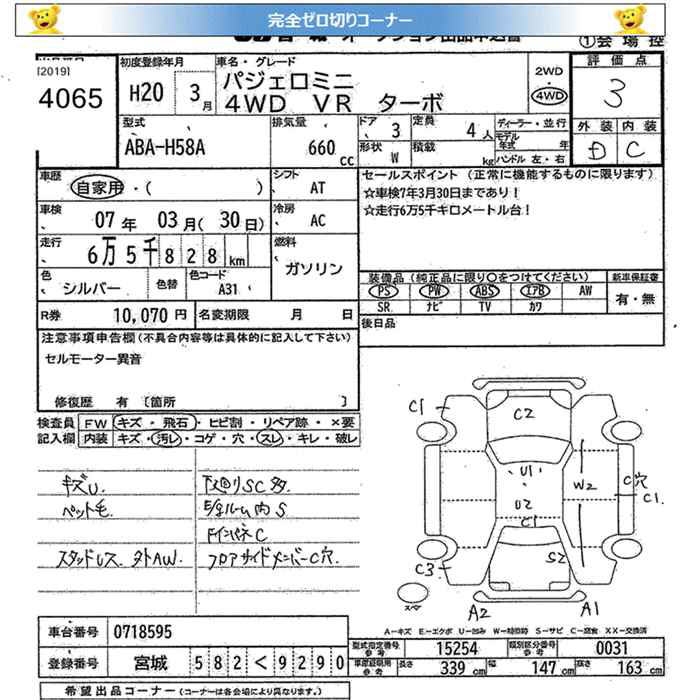 完全ゼロ切りコーナー
①会場控
[2019]
4065
初度登録年月
H20 3月
車名・グレード
パジェロミニ
4WD VR ターボ
2WD
・
4WD
評価点
3
外装 内装
D C
型式
ABA-H58A
排気量
660 cc
ドア 3
定員 4人
ディーラー・並行
モデル
年式 年
形状 W
積載 kg
ハンドル 左・右
車歴
自家用・( )
シフト AT
セールスポイント (正常に機能するものに限ります)
☆車検7年3月30日まであり!
☆走行6万5千キロメートル台!
車検
07年 03月(30日)
冷房 AC
走行
6万5千828km
燃料
ガソリン
色 シルバー
色替
色コード A31
装備品(純正品に限り○をつけてください)
新車保証書
PS PW ABS エアB AW
SR ナビ TV カワ
有・無
R券 10,070円
名変期限 月 日
後日品
注意事項申告欄(不具合内容等は具体的に記入して下さい)
セルモーター異音
修復歴 有 〔箇所 〕
検査員 FW キズ・飛石・ヒビ割・リペア跡・×要
記入欄 内装 キズ・汚レ・コゲ・穴・スレ・キレ・破レ
キズU.
下廻りSC多.
ペット毛
E/gルーム内S
FインパネC
スタッドレス. 外AW.
フロアサイドメンバーC穴.
C1
C2
U1
W2
C穴
C1.
U2
C1
C3
S2
スペア
A2
A1
A-キズ E-エクボ U-凹み W-補修跡 S-サビ C-腐食 XX-交換済
車台番号 0718595
型式指定番号
参考
15254
類別区分番号
参考
0031
登録番号 宮城 582く9290
車検証現車
参考
長さ 339cm 幅 147cm 高さ 163cm
希望出品コーナー(コーナーは各会場により異なります。)